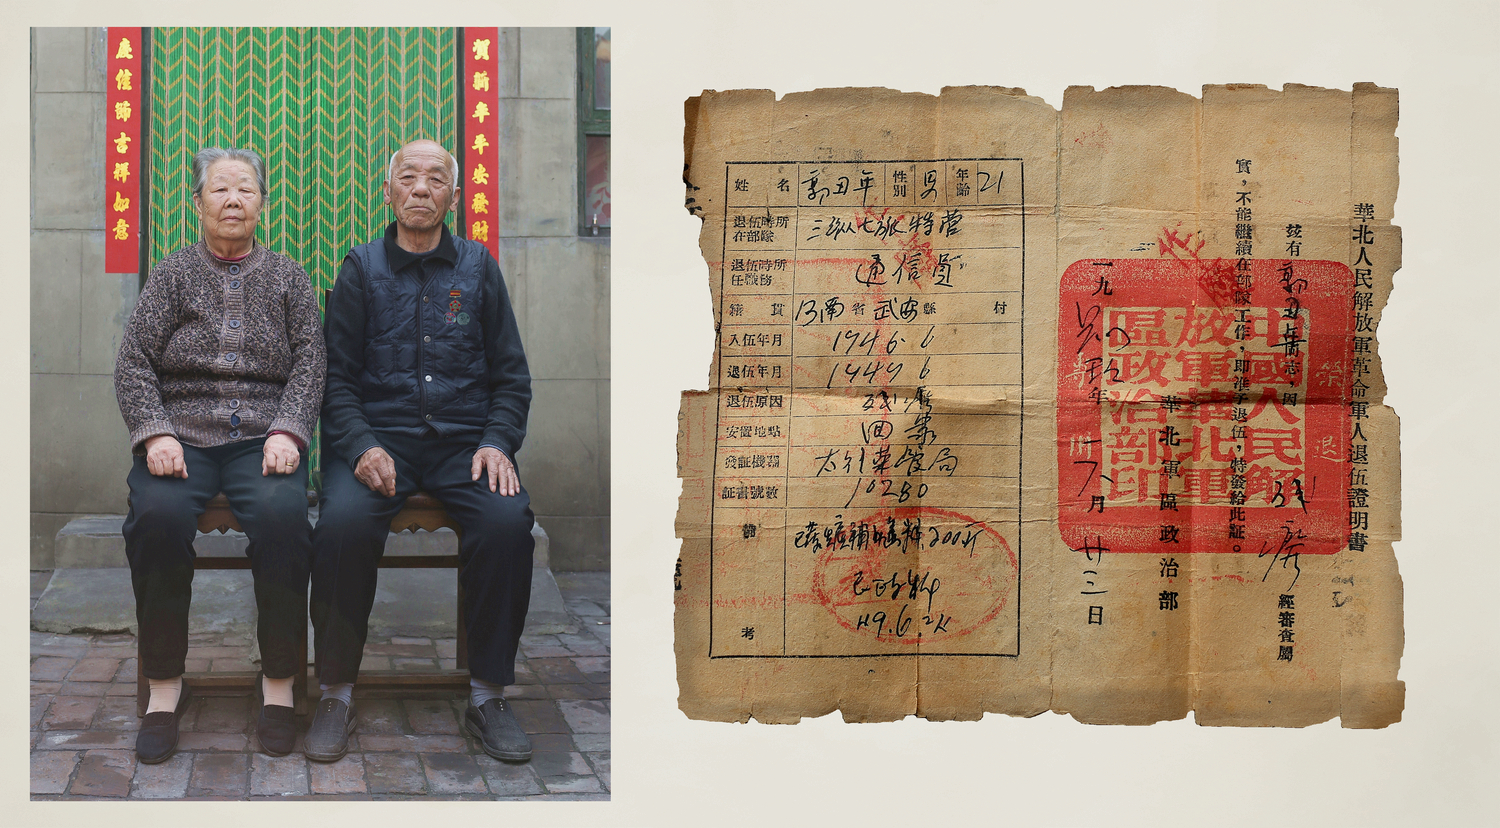 賀新年平安發財
慶佳節吉祥如意
華北人民解放軍革命軍人退伍證明書
茲有
同志,因
經審查屬
實,不能繼續在部隊工作,即准予退伍,特發給此証。
華北軍區政治部
年
月廿三日
中國人民解
放軍華北軍
區政治部印
姓名 郭丑年 性別 男 年齡 21
退伍時所在部隊 三纵七旅特营
退伍時所任職務 通信員
籍貫 河南省武安縣 村
入伍年月 1946.6
退伍年月 1949 6
退伍原因
安置地點 回家
發証機關 太行荣管局
証書號數 10280
備考
200斤
49.6.